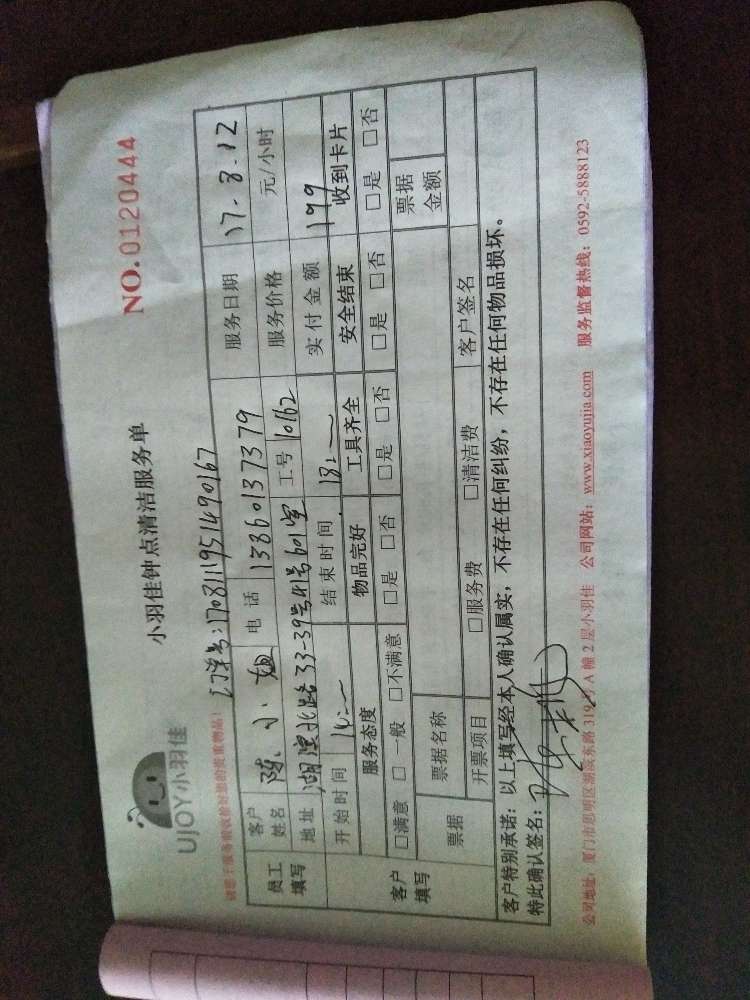 UJOY小羽佳
小羽佳钟点清洁服务单
NO.0120444
请您于服务前收拾好您的贵重物品!
订单号:1708111951490167
员工填写 客户姓名 陈小姐 电话 13860137379 服务日期 17.8.12
地址 湖滨北路33-39号41号601室 工号 10162 服务价格 元/小时
开始时间 结束时间 实付金额 199
客户填写 服务态度 物品完好 工具齐全 安全结束 收到卡片
□满意 □一般 □不满意 □是 □否 □是 □否 □是 □否 □是 □否
票据 票据名称 票据金额
开票项目 □服务费 □清洁费 客户签名
客户特别承诺:以上填写经本人确认属实,不存在任何纠纷,不存在任何物品损坏。
特此确认签名:
公司地址:厦门市思明区湖滨东路319号A幢2层小羽佳 公司网站:www.xiaoyujia.com 服务监督热线:0592-5888123